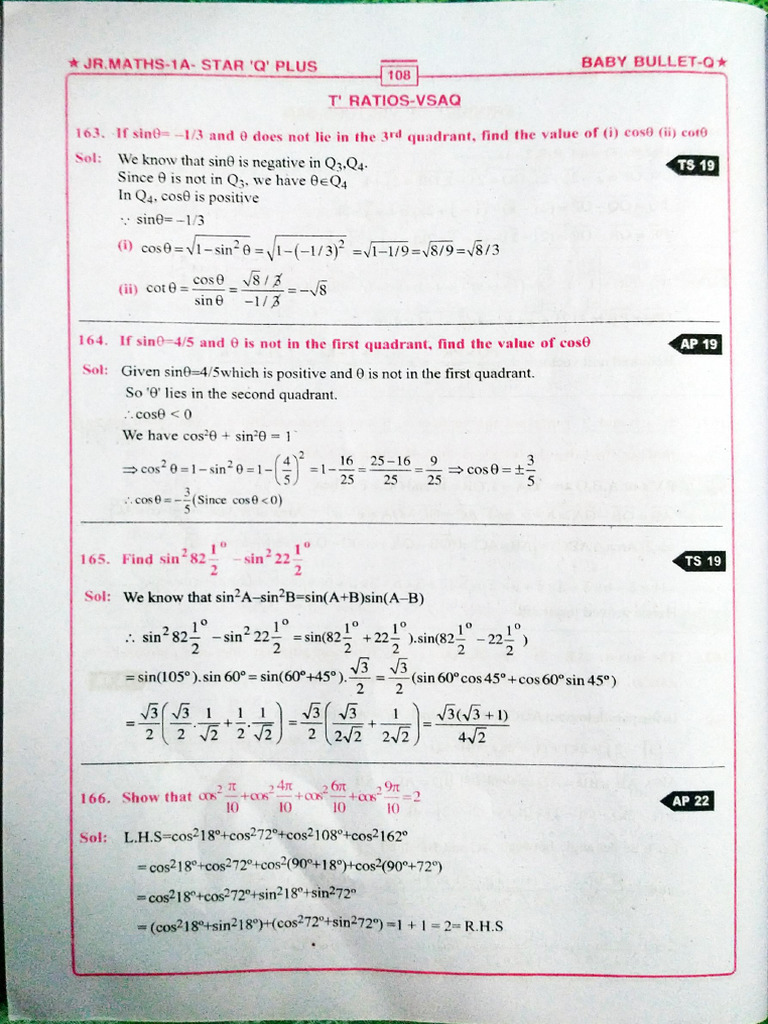 ★ JR.MATHS-1A- STAR 'Q' PLUS
108
BABY BULLET-Q★
T' RATIOS-VSAQ
163. If sinθ= –1/3 and θ does not lie in the 3rd quadrant, find the value of (i) cosθ (ii) cotθ
TS 19
Sol: We know that sinθ is negative in Q₃,Q₄.
Since θ is not in Q₃, we have θ∈Q₄
In Q₄, cosθ is positive
∵ sinθ= –1/3
(i) cosθ = √(1–sin²θ) = √(1–(–1/3)²) = √(1–1/9) = √(8/9) = √8/3
(ii) cotθ = cosθ/sinθ = (√8/3)/(–1/3) = –√8
164. If sinθ=4/5 and θ is not in the first quadrant, find the value of cosθ
AP 19
Sol: Given sinθ=4/5which is positive and θ is not in the first quadrant.
So 'θ' lies in the second quadrant.
∴cosθ < 0
We have cos²θ + sin²θ = 1
⇒ cos²θ = 1 – sin²θ = 1–(4/5)² = 1–16/25 = (25–16)/25 = 9/25 ⇒ cosθ = ±3/5
∴ cosθ = –3/5 (Since cosθ<0)
165. Find sin² 82 1/2° – sin² 22 1/2°
TS 19
Sol: We know that sin²A–sin²B=sin(A+B)sin(A–B)
∴ sin² 82 1/2° – sin² 22 1/2° = sin(82 1/2° + 22 1/2°).sin(82 1/2° – 22 1/2°)
= sin(105°).sin 60° = sin(60°+45°).√3/2 = √3/2 (sin 60° cos 45° + cos 60° sin 45°)
= √3/2 (√3/2 . 1/√2 + 1/2 . 1/√2) = √3/2 (√3/2√2 + 1/2√2) = √3(√3 + 1)/4√2
166. Show that cos² π/10 + cos² 4π/10 + cos² 6π/10 + cos² 9π/10 = 2
AP 22
Sol: L.H.S=cos²18°+cos²72°+cos²108°+cos²162°
= cos²18°+cos²72°+cos²(90°+18°)+cos²(90°+72°)
= cos²18°+cos²72°+sin²18°+sin²72°
= (cos²18°+sin²18°)+(cos²72°+sin²72°) =1 + 1 = 2= R.H.S